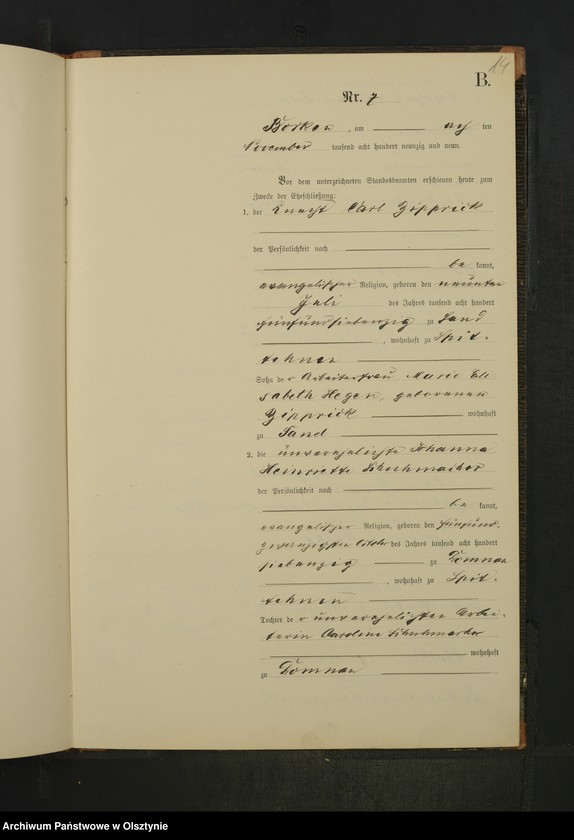 14
B.
Nr. 7
Borken, am ten
November tausend acht hundert neunzig und neun.
Vor dem unterzeichneten Standesbeamten erschienen heute zum
Zwecke der Eheschließung:
1. der Knecht Carl Zipprick
der Persönlichkeit nach
be kannt,
evangelischer Religion, geboren den neunten
Juli des Jahres tausend acht hundert
fünfundsiebenzig zu Sand
, wohnhaft zu Spit-
tehnen
Sohn der Arbeiterfrau Marie Eli
sabeth Hegen, geborenen
Zipprick wohnhaft
zu Sand
2. die unverehelichte Johanna
Heinriette Schuhmacher
der Persönlichkeit nach
be kannt,
evangelischer Religion, geboren den fünfund-
zwanzigsten October des Jahres tausend acht hundert
siebenzig zu Domnau
, wohnhaft zu Spit-
tehnen
Tochter der unverehelichten Arbei-
terin Caroline Schuhmacher
wohnhaft
zu Domnau
Archiwum Państwowe w Olsztynie